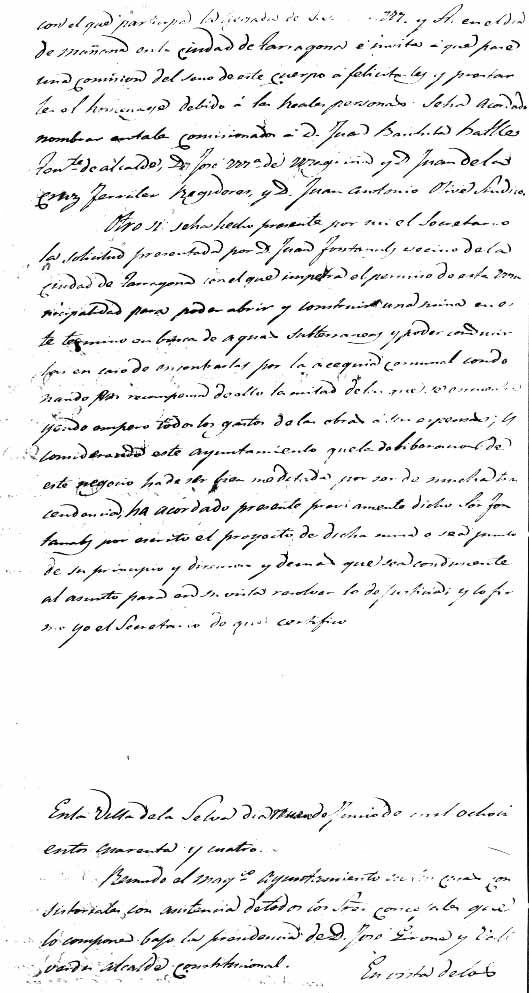 con el que participa la llegada de S.S. M.M. y A. en el dia
de mañana en la ciudad de Tarragona é invita á que pase
una comision del seno de este cuerpo a felicitarles y prestar
les el homenage debido á las Reales personas. Se ha acordado
nombrar en tales comisionados á D. Juan Bautista Batlle
Tente. de alcalde, D. José Ma. de y D. Juan de la
Cruz Ferrater Regidores, y D. Juan Antonio Olivé Sindico.
Otro si se ha hecho presente por mi el Secretario
la solicitud presentada por D. Juan Fontanals vecino de la
ciudad de Tarragona con el que impetra el permiso de esta mu
nicipalidad para poder abrir y construir una mina en es
te termino en busca de aguas subterraneas y poder conducir
las en caso de encontrarlas por la acequia comunal condo
nando por recompensa de ello la mitad de las que se encuentre
yendo empero todos los gastos de las obras á sus expensas; y
considerando este ayuntamiento que la deliberacion de
este negocio ha de ser bien meditada por ser de mucha tras
cendencia, ha acordado presente previamente dicho Sor. Fon
tanals por escrito el proyecto de dicha mina o sea punto
de su principio y direccion y demas que sea conducente
al asunto para en su vista resolver lo de justicia; y lo fir
mo yo el Secretario de que certifico
En la Villa de la Selva dia nueve de Junio de mil ochoci
entos cuarenta y cuatro.
Reunido el magco. Ayuntamiento en las casas con
sistoriales con asistencia de todos los Sres. concejales que
lo componen bajo la presidencia de D. José Girona y
alcalde constitucional.
En vista de los